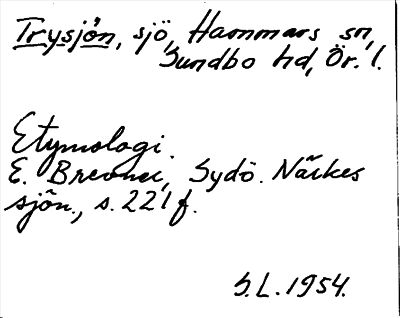 Trysjön, sjö, Hammars sn,
Sundbo hd, Ör. l.
Etymologi.
E. Brevner, Sydö. Närkes
sjön., s. 221 f.
S.L. 1954.